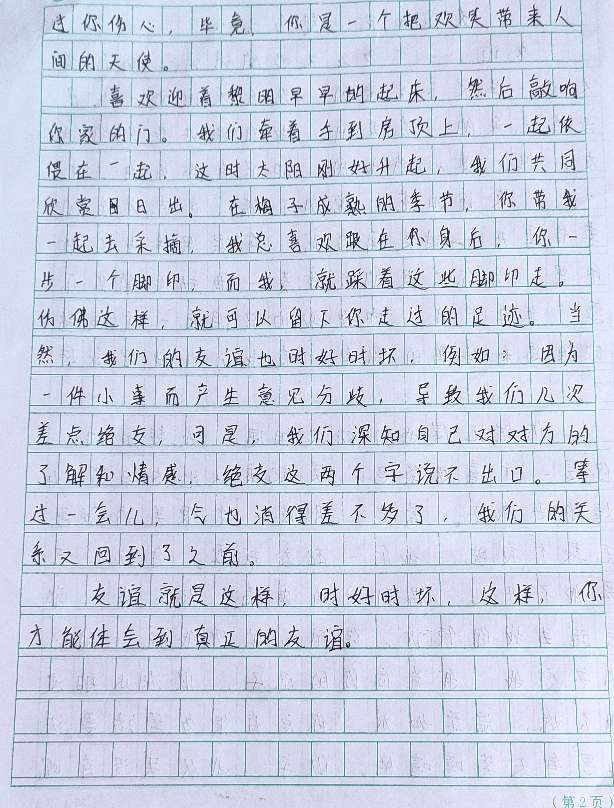 过你伤心，毕竟，你是一个把欢笑带来人
间的天使。
喜欢迎着黎明早早的起床，然后敲响
你家的门。我们牵着手到房顶上，一起依
偎在一起，这时太阳刚好升起，我们共同
欣赏日出。在梅子成熟的季节，你带我
一起去采摘，我总喜欢跟在你身后，你一
步一个脚印，而我，就踩着这些脚印走。
仿佛这样，就可以留下你走过的足迹。当
然，我们的友谊也时好时坏，例如：因为
一件小事而产生意见分歧，导致我们几次
差点绝友，可是，我们深知自己对对方的
了解和情感，绝交这两个字说不出口。等
过一会儿，气也消得差不多了，我们的关
系又回到了之前。
友谊就是这样，时好时坏，这样，你
才能体会到真正的友谊。
（第2页）